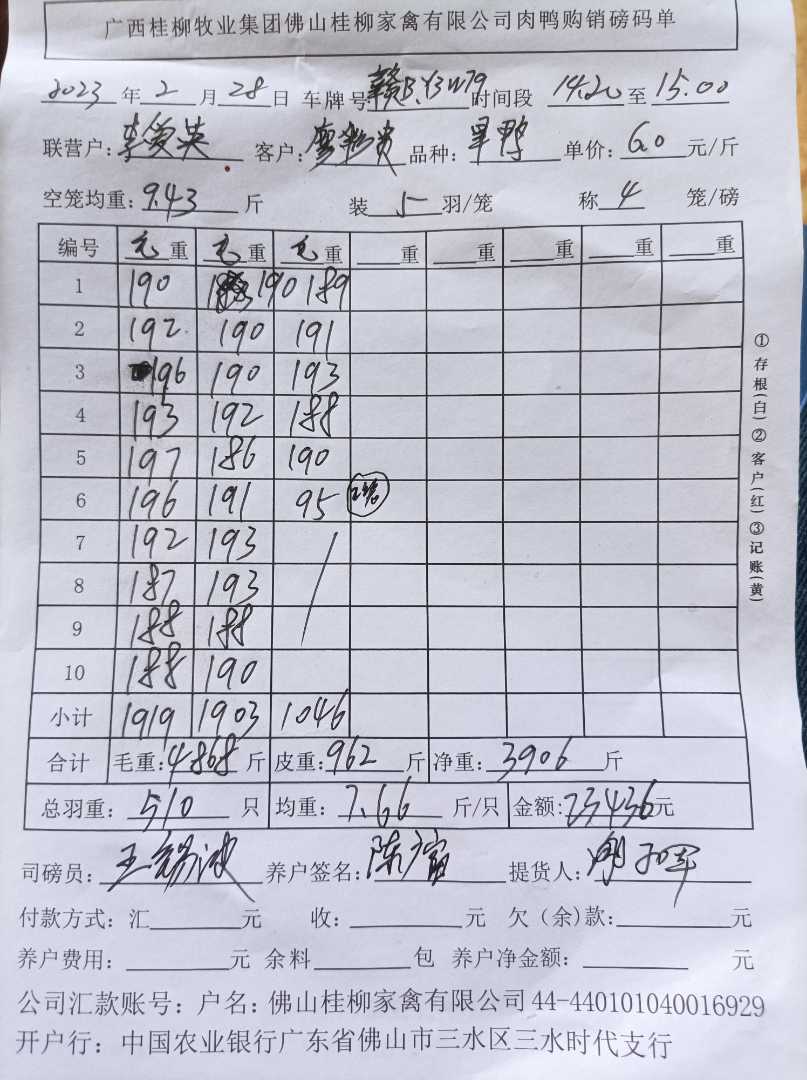 广西桂柳牧业集团佛山桂柳家禽有限公司肉鸭购销磅码单
2023 年 2 月 28 日 车牌号 赣B.Y3W79 时间段 14.20 至 15.00
联营户: 李爱英 客户: 廖 贵 品种: 旱鸭 单价: 6.0 元/斤
空笼均重: 9.43 斤 装 5 羽/笼 称 4 笼/磅
编号 毛重 毛重 毛重 重 重 重 重 重
1 190 190 189
2 192 190 191
3 196 190 193
4 193 192 188
5 197 186 190
6 196 191 95
7 192 193
8 187 193
9 188 188
10 188 190
小计 1919 1903 1046
合计 毛重: 4868 斤 皮重: 962 斤 净重: 3906 斤
总羽重: 510 只 均重: 7.66 斤/只 金额: 23436 元
司磅员: 王锡波 养户签名: 陈富 提货人:
付款方式: 汇 元 收: 元 欠（余)款: 元
养户费用: 元 余料 包 养户净金额: 元
公司汇款账号: 户名: 佛山桂柳家禽有限公司 44-440101040016929
开户行: 中国农业银行广东省佛山市三水区三水时代支行
①存根(白)②客户(红)③记账(黄)